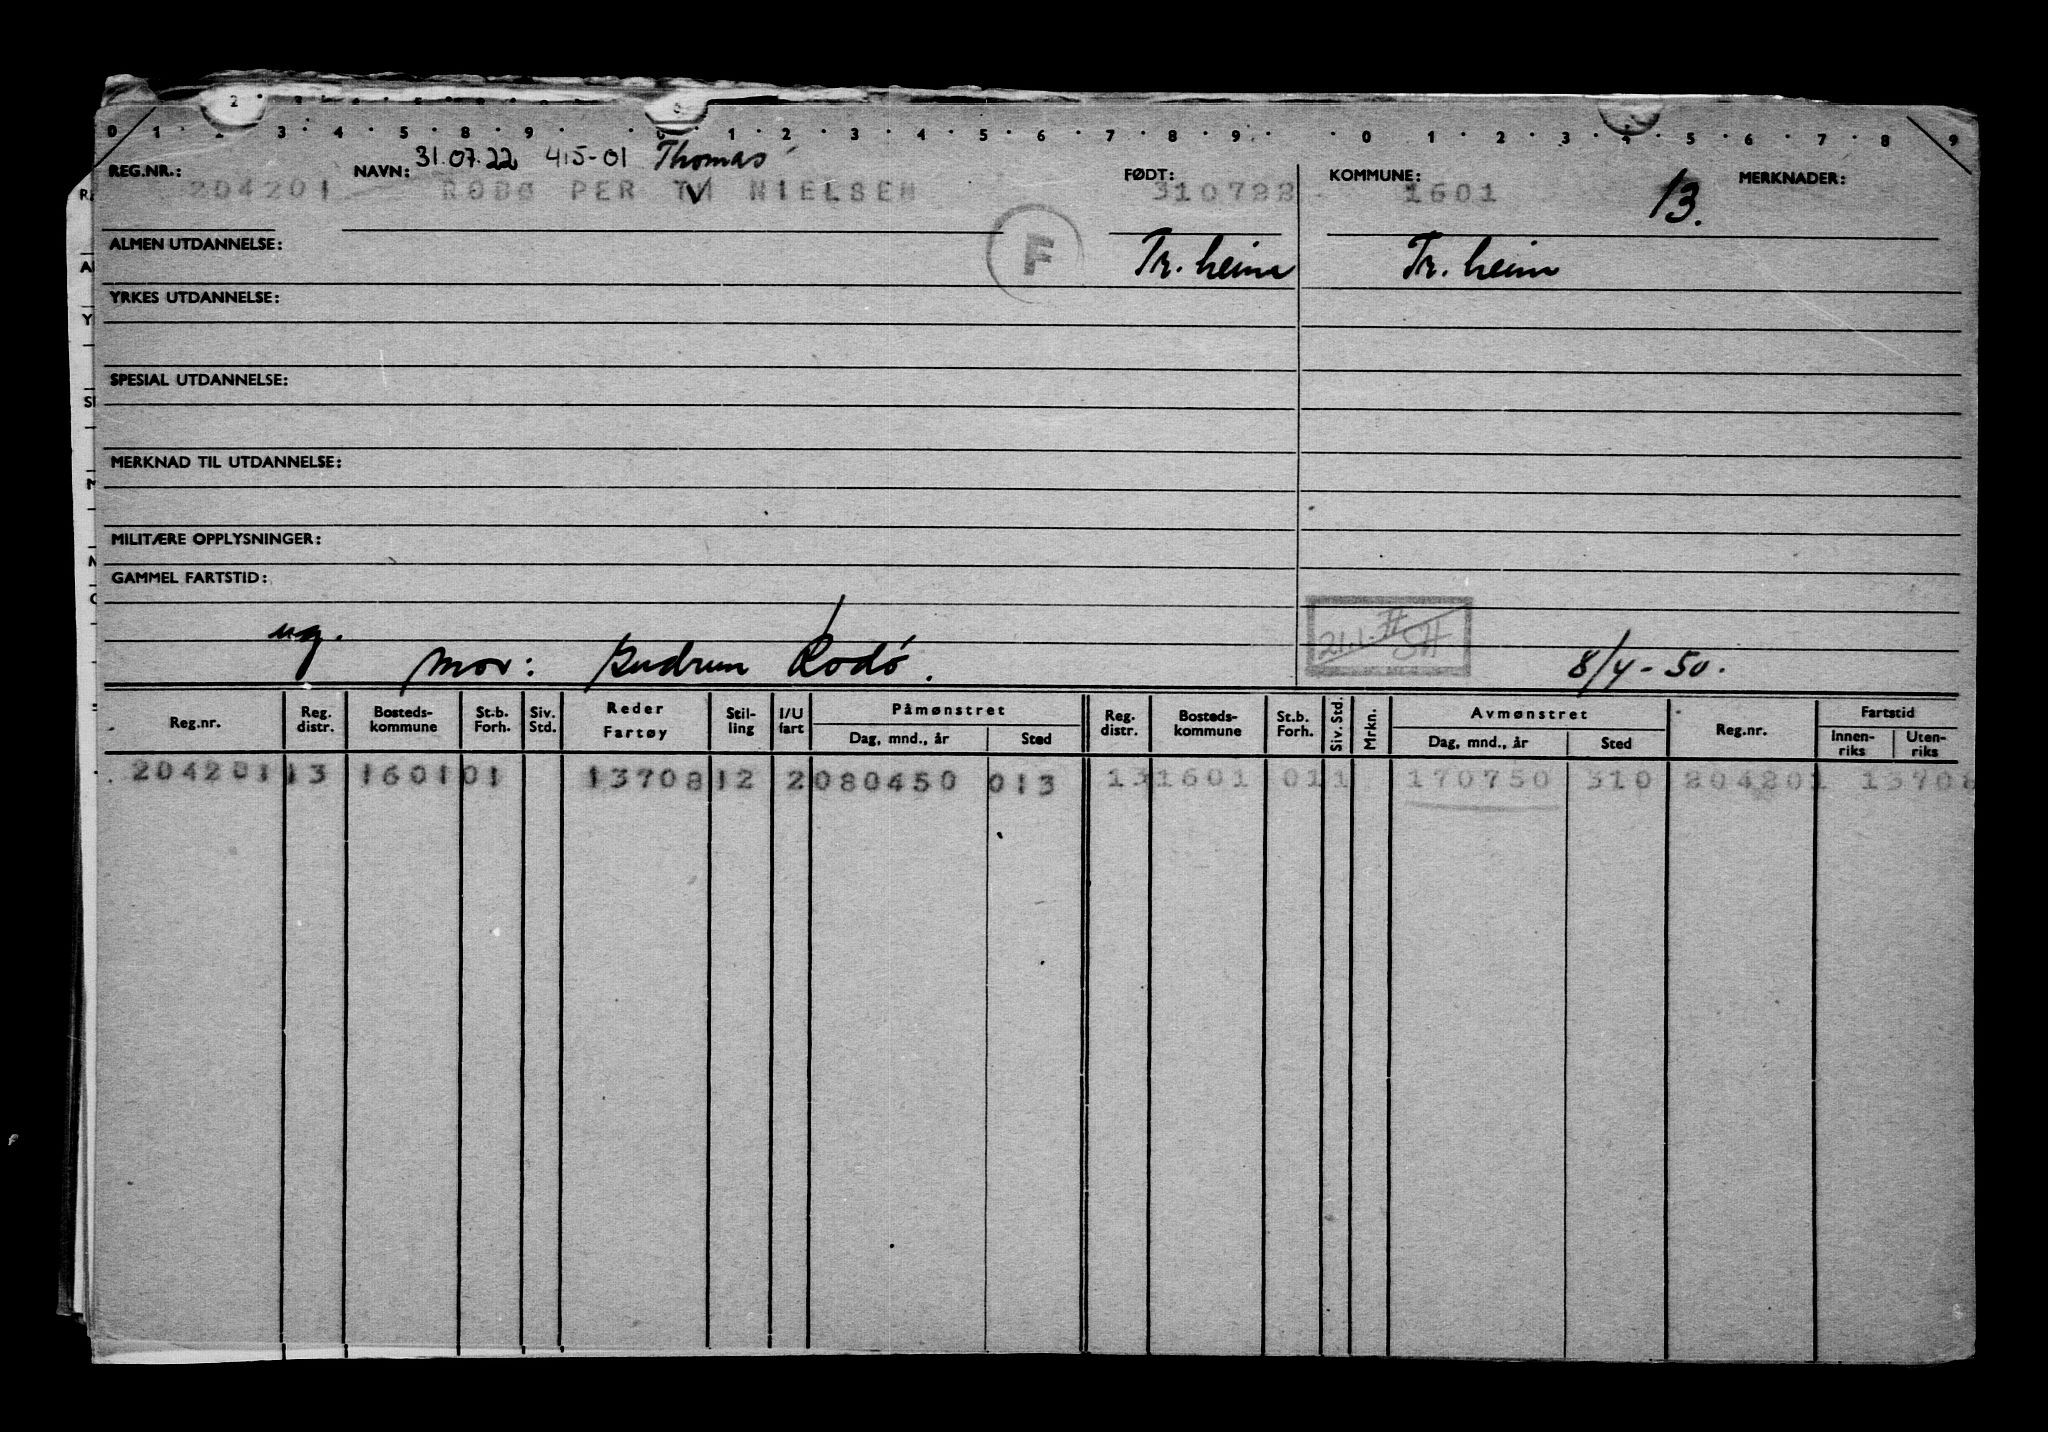 0 1 2 3 4 5 8 9 0 1 2 3 4 5 6 7 8 9 0 1 2 3 4 5 6 7 8 9
31.07.22 415-01 Thomas
REG.NR.: NAVN: FØDT: KOMMUNE: MERKNADER:
204201 RØDØ PER TH NIELSEN 310722 1601 13.
ALMEN UTDANNELSE: F Tr. heim Tr. heim
YRKES UTDANNELSE:
SPESIAL UTDANNELSE:
MERKNAD TIL UTDANNELSE:
MILITÆRE OPPLYSNINGER:
GAMMEL FARTSTID:
ug. mor: Gudrun Rødø. 8/4-50.
Reg.nr. Reg. distr. Bosteds-kommune St.b. Forh. Siv. Std. Reder Fartøy Stil-ling I/U fart Påmønstret Dag, mnd., år Sted Reg. distr. Bosteds-kommune St.b. Forh. Siv. Std. Mrkn. Avmønstret Dag, mnd., år Sted Reg.nr. Fartstid Innen-riks Uten-riks
204201 13 1601 01 13708 12 2 080450 013 13 1601 01 1 170750 310 204201 13708